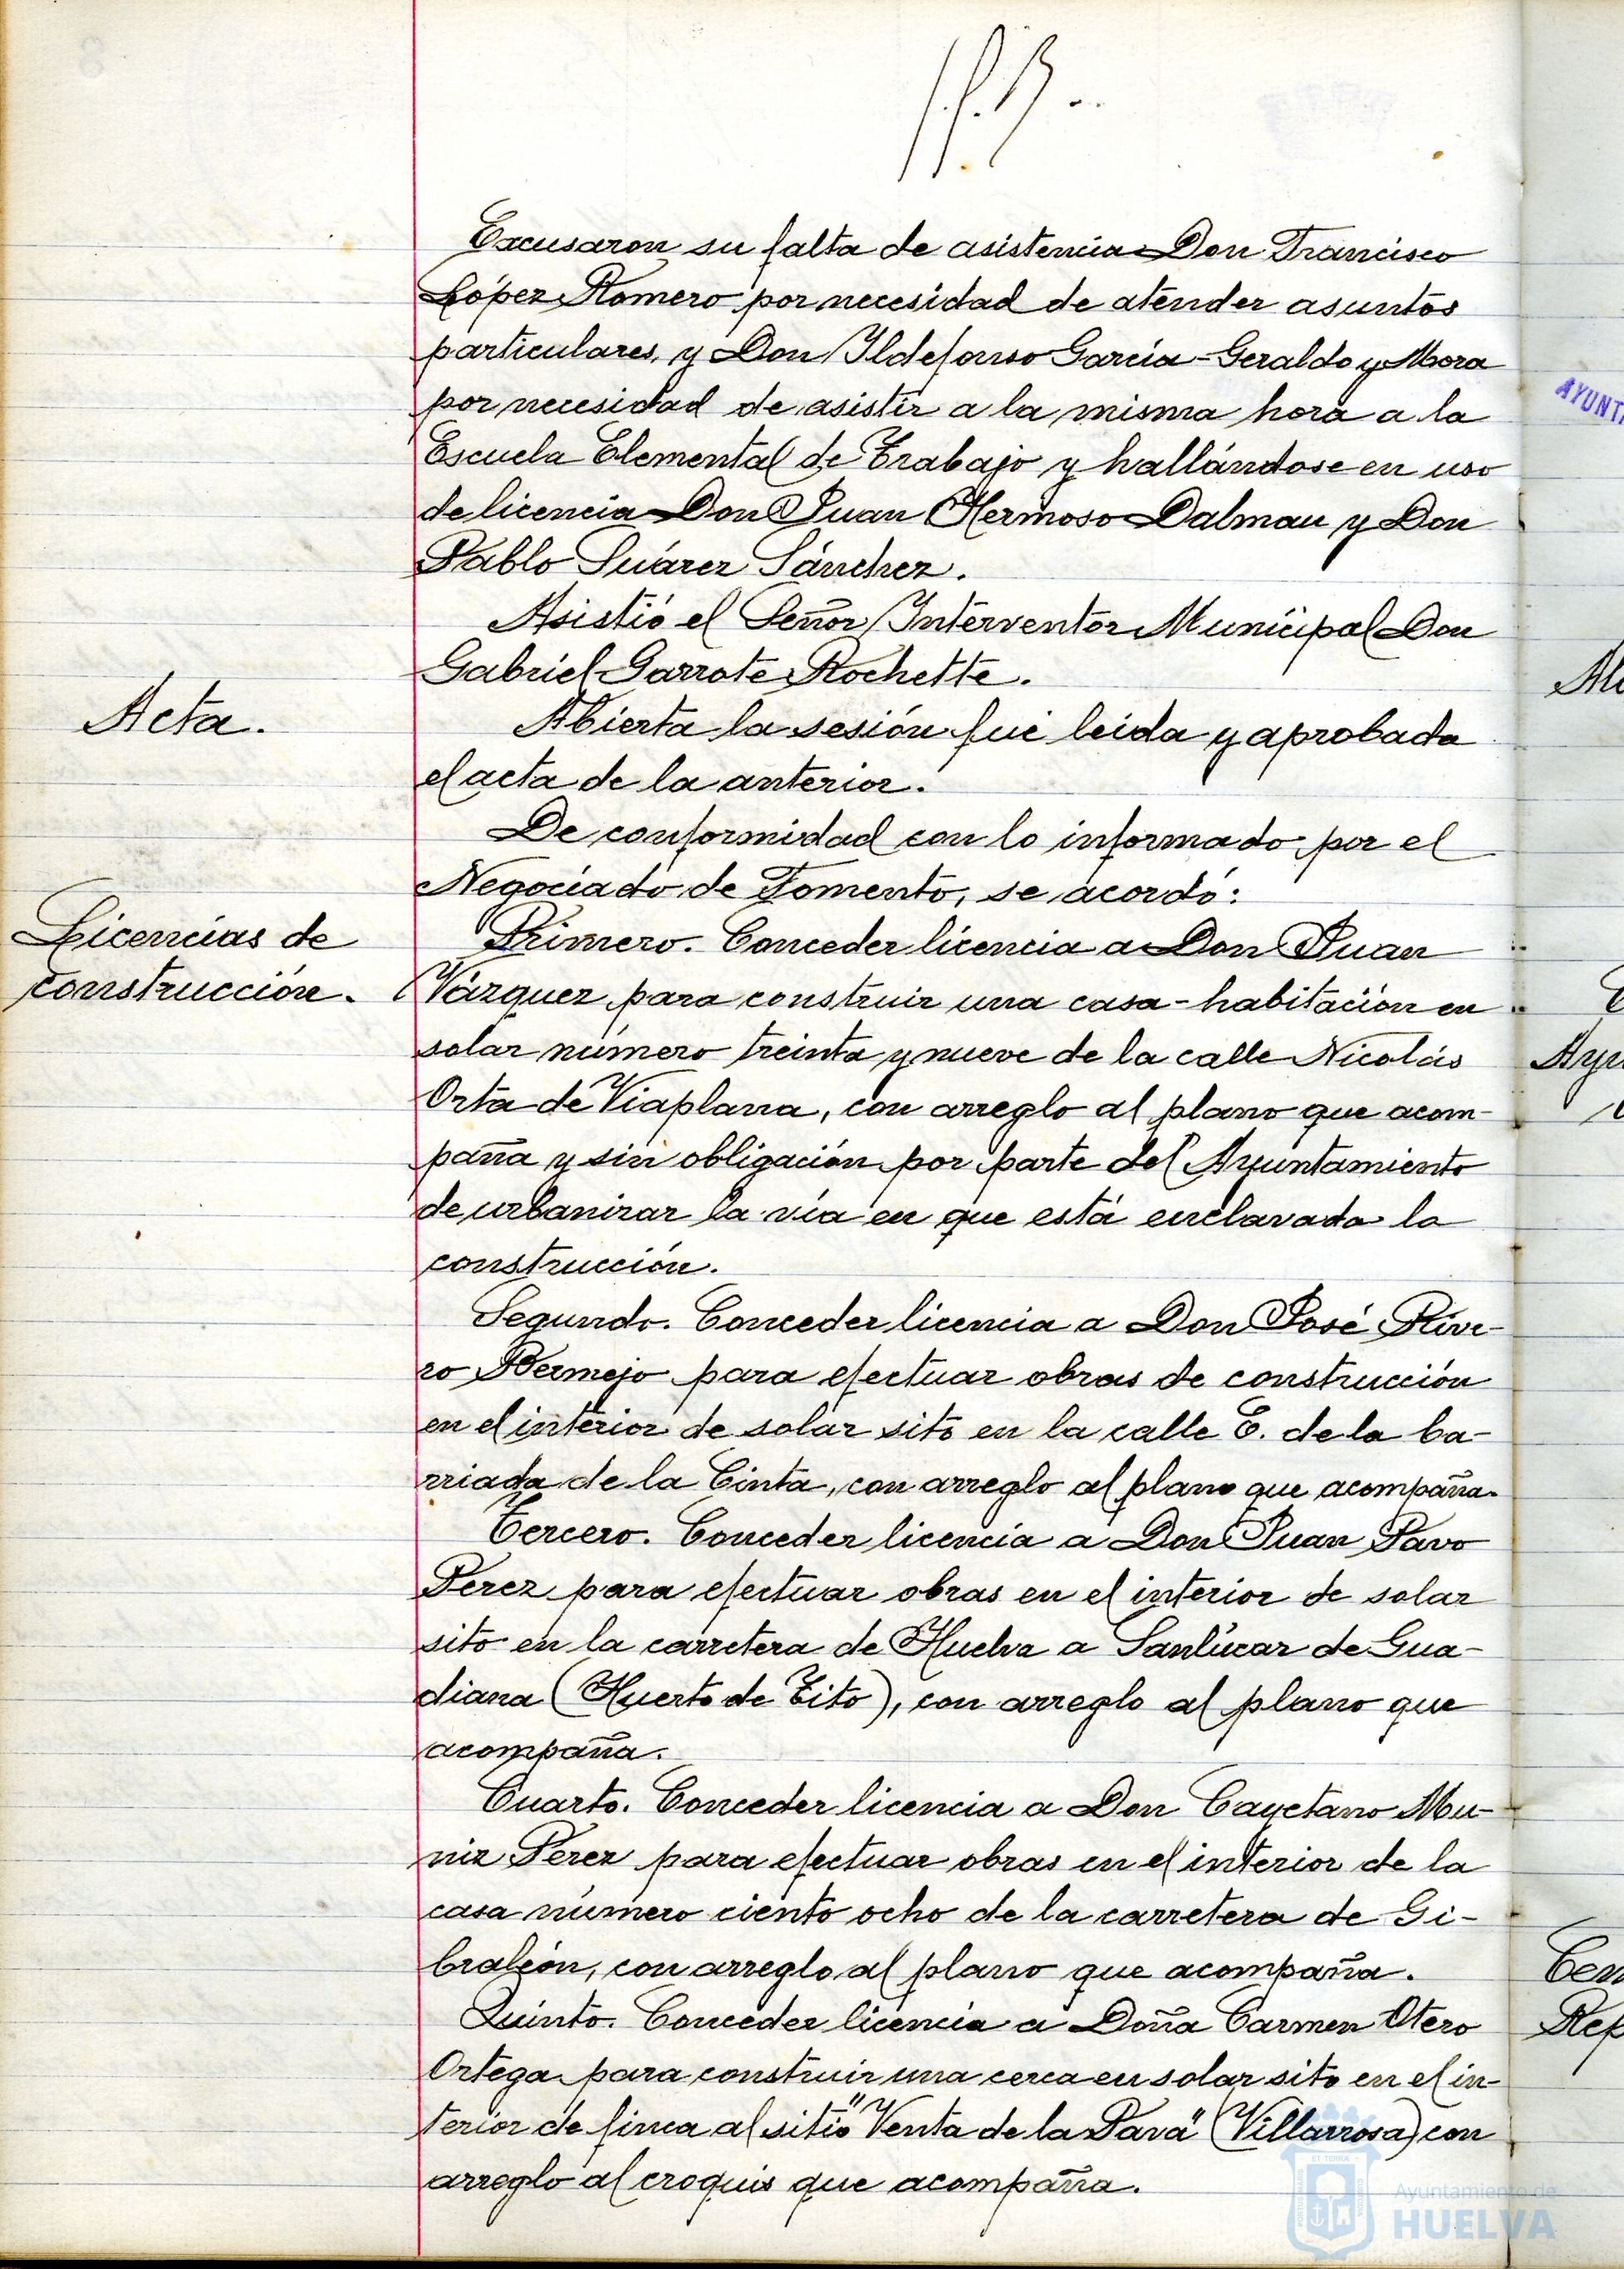 Excusaron su falta de asistencia Don Francisco
López Romero por necesidad de atender asuntos
particulares, y Don Ildefonso García-Geraldo y Mora
por necesidad de asistir a la misma hora a la
Escuela Elemental de Trabajo y hallándose en uso
de licencia Don Juan Hermoso Dalmau y Don
Pablo Suárez Sánchez.
Asistió el Señor Interventor Municipal Don
Gabriel Garrote Rochette.
Acta.
Abierta la sesión fué leida y aprobada
el acta de la anterior.
De conformidad con lo informado por el
Negociado de Fomento, se acordó:
Licencias de
construcción.
Primero. Conceder licencia a Don Juan
Vázquez para construir una casa-habitación en
solar número treinta y nueve de la calle Nicolás
Orta de Viaplana, con arreglo al plano que acom-
paña y sin obligación por parte del Ayuntamiento
de urbanizar la vía en que está enclavada la
construcción.
Segundo. Conceder licencia a Don José Rive-
ro Bermejo para efectuar obras de construcción
en el interior de solar sito en la calle E. de la ba-
rriada de la Cinta, con arreglo al plano que acompaña.
Tercero. Conceder licencia a Don Juan Pavo
Perez para efectuar obras en el interior de solar
sito en la carretera de Huelva a Sanlúcar de Gua-
diana (Huerto de Tito), con arreglo al plano que
acompaña.
Cuarto. Conceder licencia a Don Cayetano Mu-
niz Pérez para efectuar obras en el interior de la
casa número ciento ocho de la carretera de Gi-
braleón, con arreglo al plano que acompaña.
Quinto. Conceder licencia a Doña Carmen Otero
Ortega para construir una cerca en solar sito en el in-
terior de finca al sitio "Venta de la Pava" (Villarrosa) con
arreglo al croquis que acompaña.
Ayuntamiento de
HUELVA